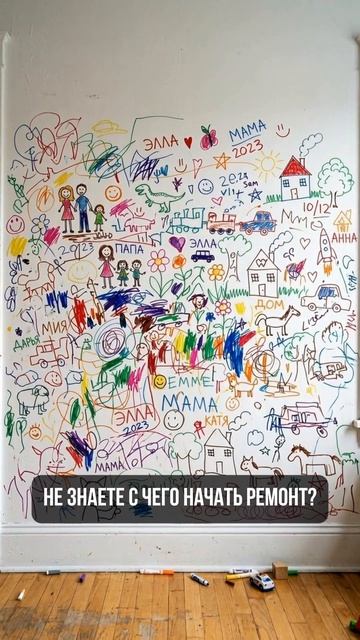 ЭЛЛА
МАМА
2023
10/12
АННА
2023
ПАПА
ЭЛЛА
ДОМ
МИЯ
ДАРЬЯ
EMME!
МАМА
ЭЛЛА
2023
КАТЯ
МАМА
НЕ ЗНАЕТЕ С ЧЕГО НАЧАТЬ РЕМОНТ?